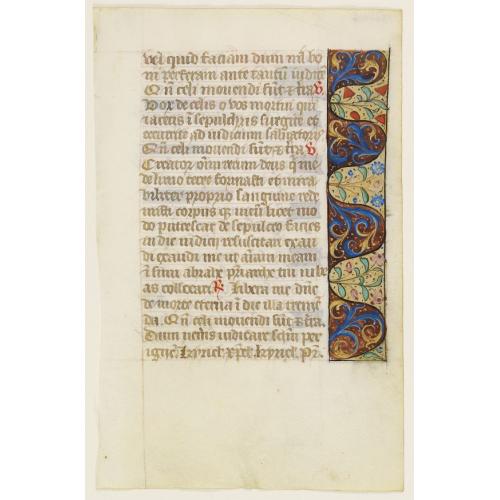 vel quid faciam dum nil bo
ni perferam ante tantū iudicē
Qn̄ celi mouendi sūt ⁊ t̄ra ꝟ
Vox de celis o vos mortui qui
iacetis ī sepulchris surgite et
occurrite ad iudicium saluatoris
Qn̄ celi mouendi sūt ⁊ t̄ra ꝟ
Creator oīm rerum deus q̄ me
de limo terre formasti et mira
biliter proprio sanguine rede
misti corpus q̄ meū licet mo
do putrescat de sepulcro facies
in die iudicii resuscitari exau
di exaudi me ut aīam meam
ī sinu abrahe pr̄iarche tui iube
as collocare ℟ Libera me dn̄e
de morte eterna ī die illa tremē
da Qn̄ celi mouendi sūt ⁊ t̄ra
Dum ueneris iudicare sc̄lm per
ignē. kyriel. xp̄el. kyriel. Pr̄.